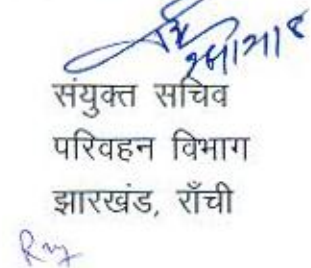 संयुक्त सचिव
परिवहन विभाग
झारखंड, राँची